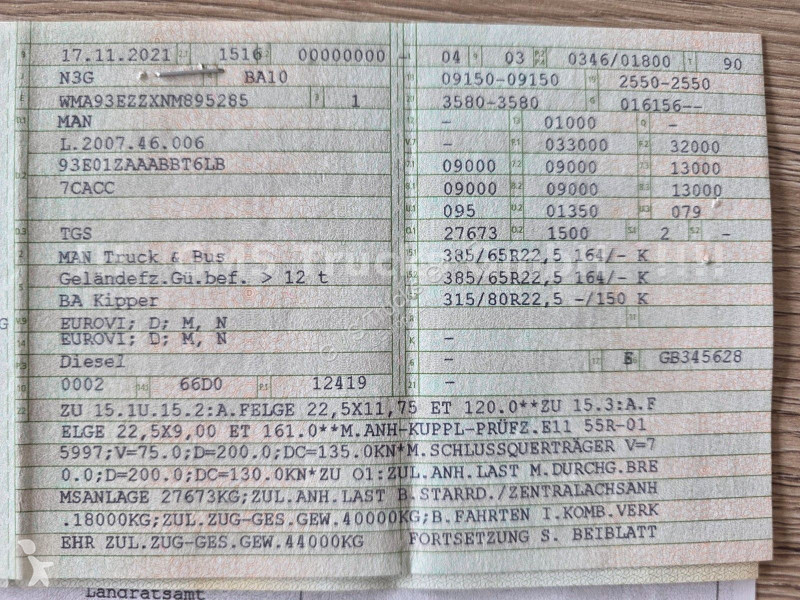 17.11.2021 1516 00000000 04 03 0346/01800 90
N3G BA10 09150-09150 2550-2550
WMA93EZZXNM895285 1 3580-3580 016156--
MAN - 01000 -
L.2007.46.006 - 033000 32000
93E01ZAAABBT6LB 09000 09000 13000
7CACC 09000 09000 13000
095 01350 079
TGS 27673 1500 2 -
MAN Truck & Bus 385/65R22,5 164/- K
Geländefz.Gü.bef. > 12 t 385/65R22,5 164/- K
BA Kipper 315/80R22,5 -/150 K
EUROVI; D; M, N
EUROVI; D; M, N -
Diesel - E GB345628
0002 66D0 12419 -
ZU 15.1U.15.2:A.FELGE 22,5X11,75 ET 120.0**ZU 15.3:A.F
ELGE 22,5X9,00 ET 161.0**M.ANH-KUPPL-PRÜFZ.E11 55R-01
5997;V=75.0;D=200.0;DC=135.0KN*M.SCHLUSSQUERTRÄGER V=7
0.0;D=200.0;DC=130.0KN*ZU O1:ZUL.ANH.LAST M.DURCHG.BRE
MSANLAGE 27673KG;ZUL.ANH.LAST B.STARRD./ZENTRALACHSANH
.18000KG;ZUL.ZUG-GES.GEW.40000KG;B.FAHRTEN I.KOMB.VERK
EHR ZUL.ZUG-GES.GEW.44000KG FORTSETZUNG S. BEIBLATT
Landratsamt